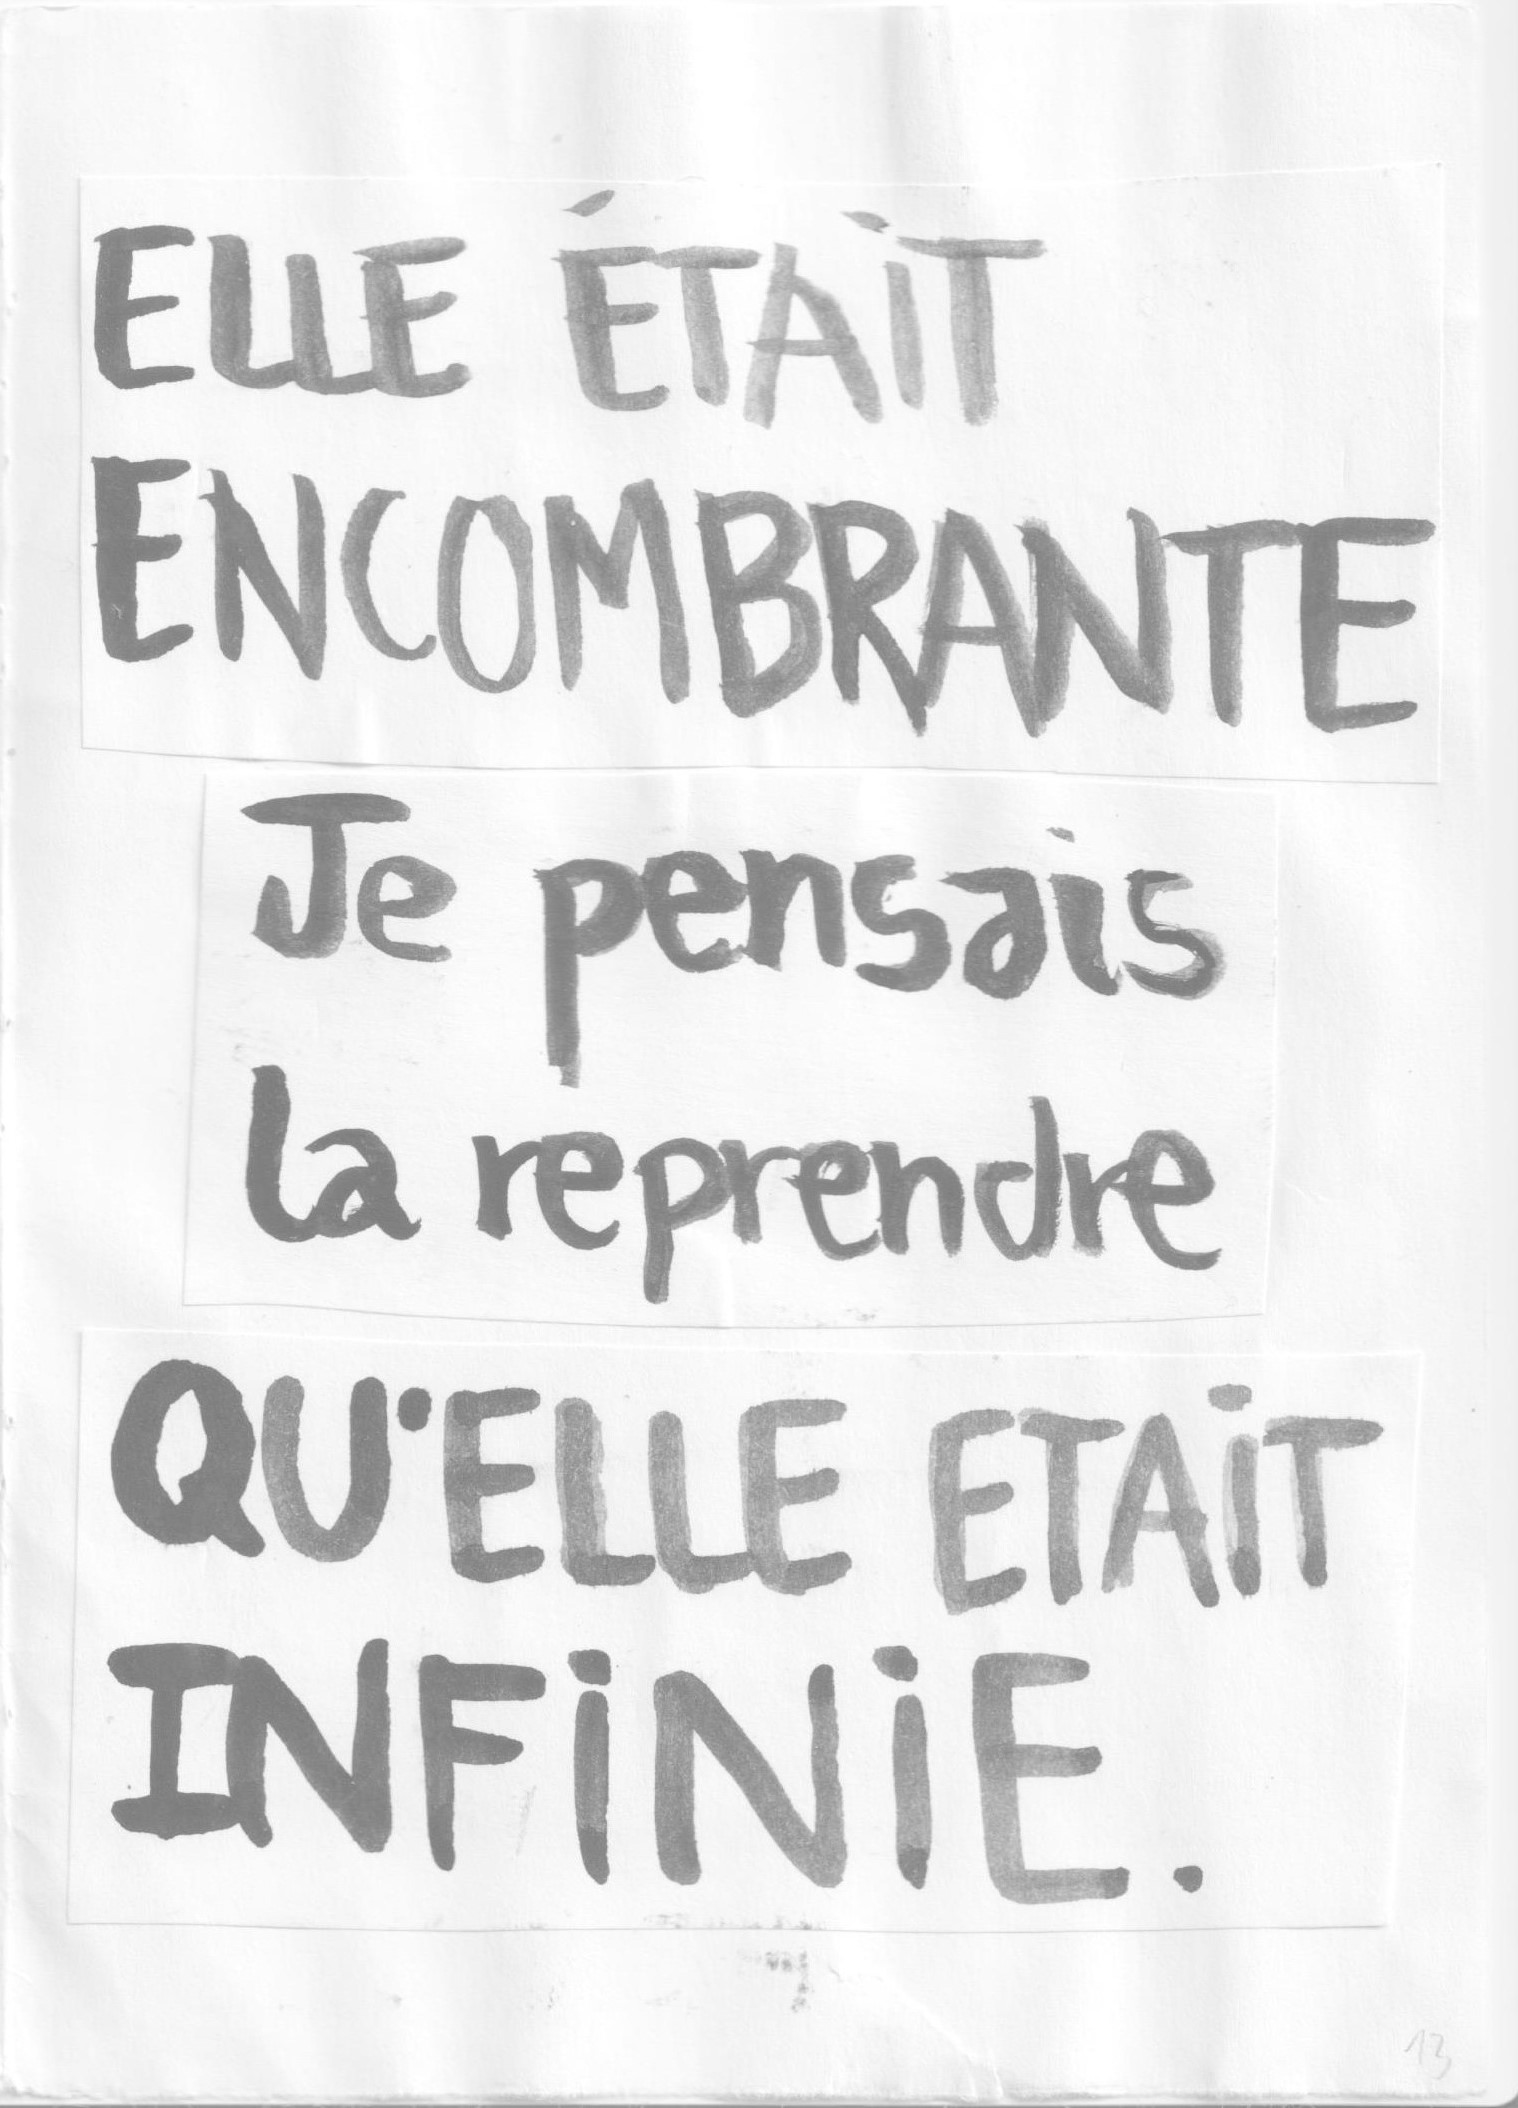 ELLE ÉTAiT
ENCOMBRANTE
Je pensais
la reprendre
QU'ELLE ETAiT
INFiNiE.
13